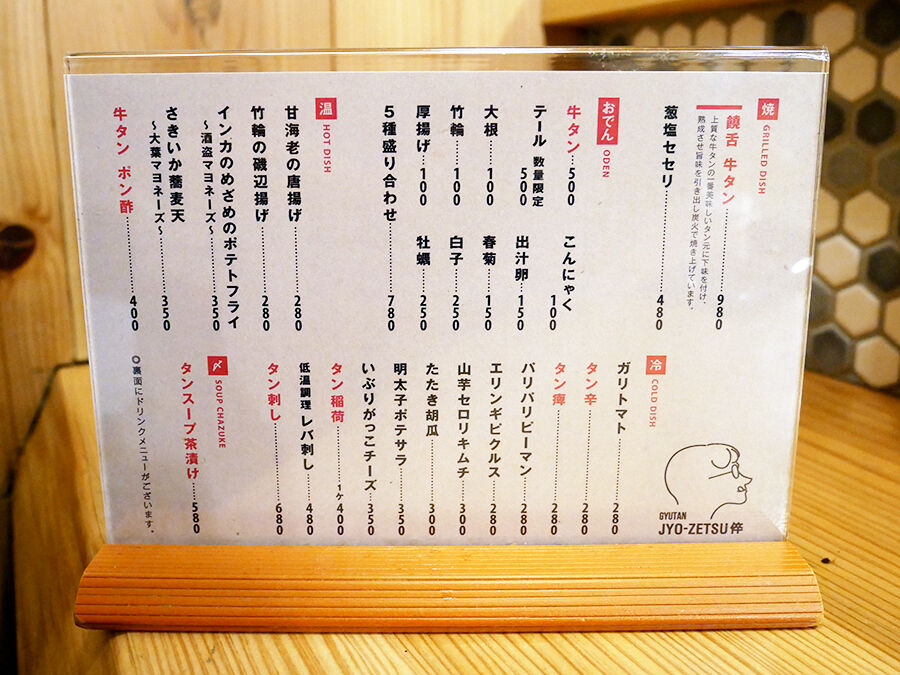 焼 GRILLED DISH
饒舌 牛タン 980
上質な牛タンの一番美味しいタン元に下味を付け、
熟成させ旨味を引き出し炭火で焼き上げています。
葱塩セセリ 480
おでん ODEN
牛タン 500
こんにゃく 100
テール 数量限定 500
出汁卵 150
大根 100
春菊 150
竹輪 100
白子 250
厚揚げ 100
牡蠣 250
5種盛り合わせ 780
温 HOT DISH
甘海老の唐揚げ 280
竹輪の磯辺揚げ 280
インカのめざめのポテトフライ
～酒盗マヨネーズ～ 350
さきいか蕎麦天
～大葉マヨネーズ～ 350
牛タン ポン酢 400
冷 COLD DISH
ガリトマト 280
タン辛 280
タン痺 280
パリパリピーマン 280
エリンギピクルス 280
山芋セロリキムチ 300
たたき胡瓜 300
明太子ポテサラ 350
いぶりがっこチーズ 350
タン稲荷 1ヶ400
低温調理 レバ刺し 480
タン刺し 680
〆 SOUP CHAZUKE
タンスープ茶漬け 580
○裏面にドリンクメニューがございます。
GYUTAN
JYO-ZETSU 倅